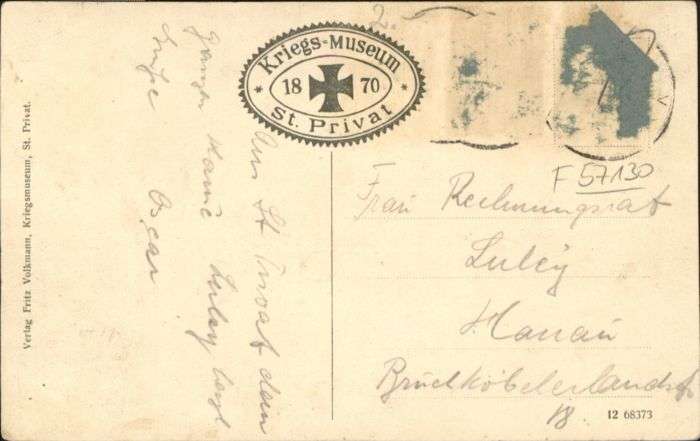 2.
Kriegs-Museum
18 70
St. Privat
F 57130
Aus St. Privat dem
ganzen Hause Luley
Oscar
Frau Rechnungsrat
Luley
Hanau
Bruchköbelerlandstr
18.
12 68373
Verlag Fritz Volkmann, Kriegsmuseum, St. Privat.